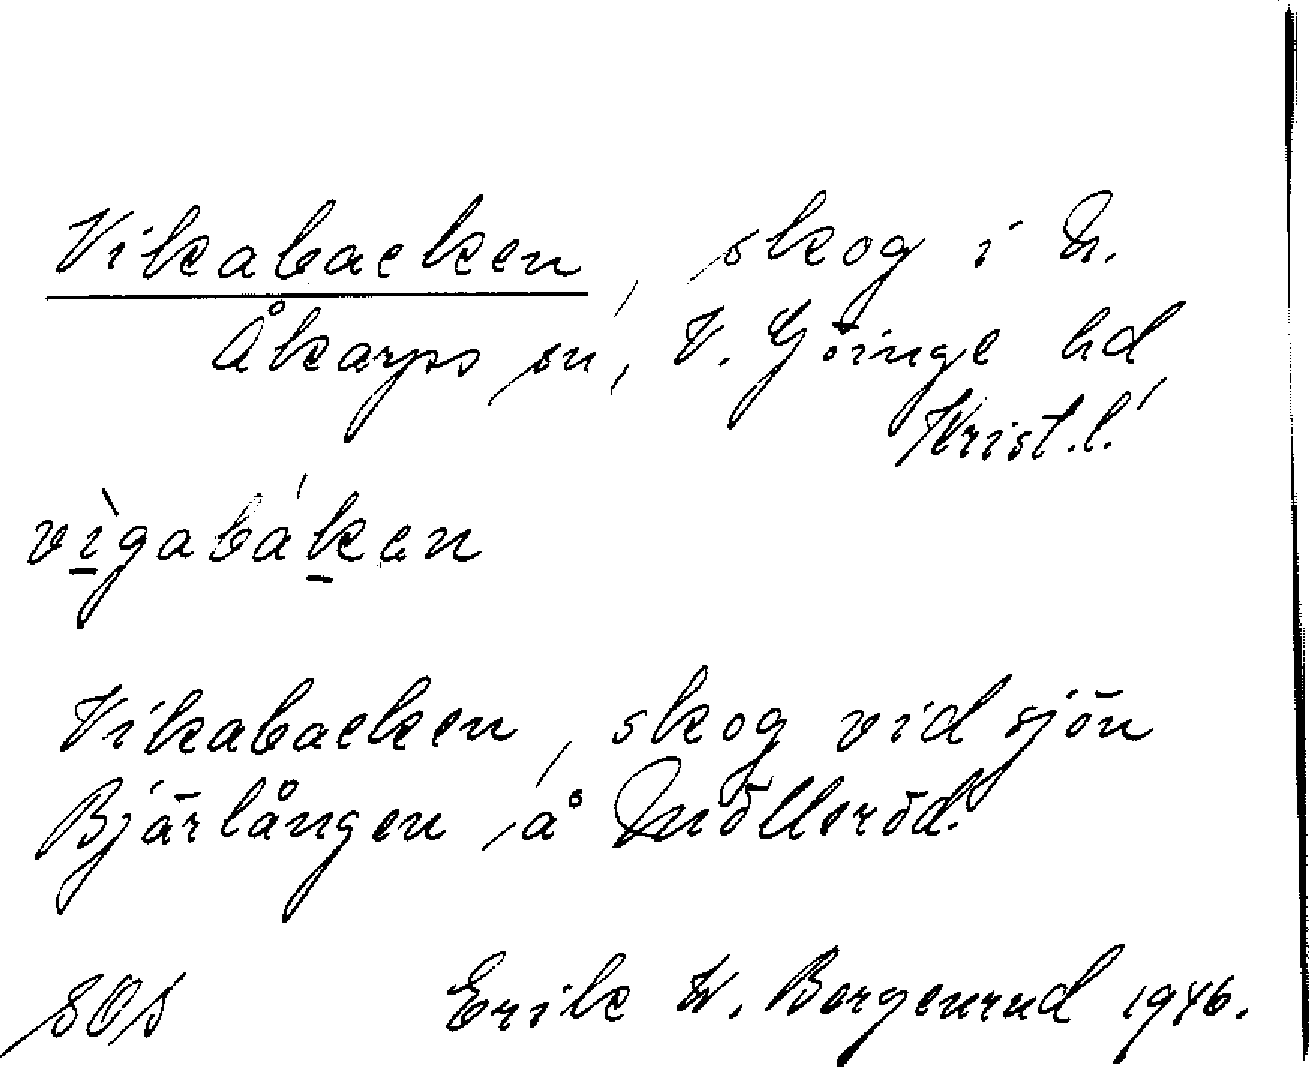 Vikabacken, skog i N.
Åkarps sn, V. Göinge hd
Krist.l.
vìgabáken
Vikabacken, skog vid sjön
Bjärlången å Mölleröd.
SOS Erik W. Borgenrud 1946.